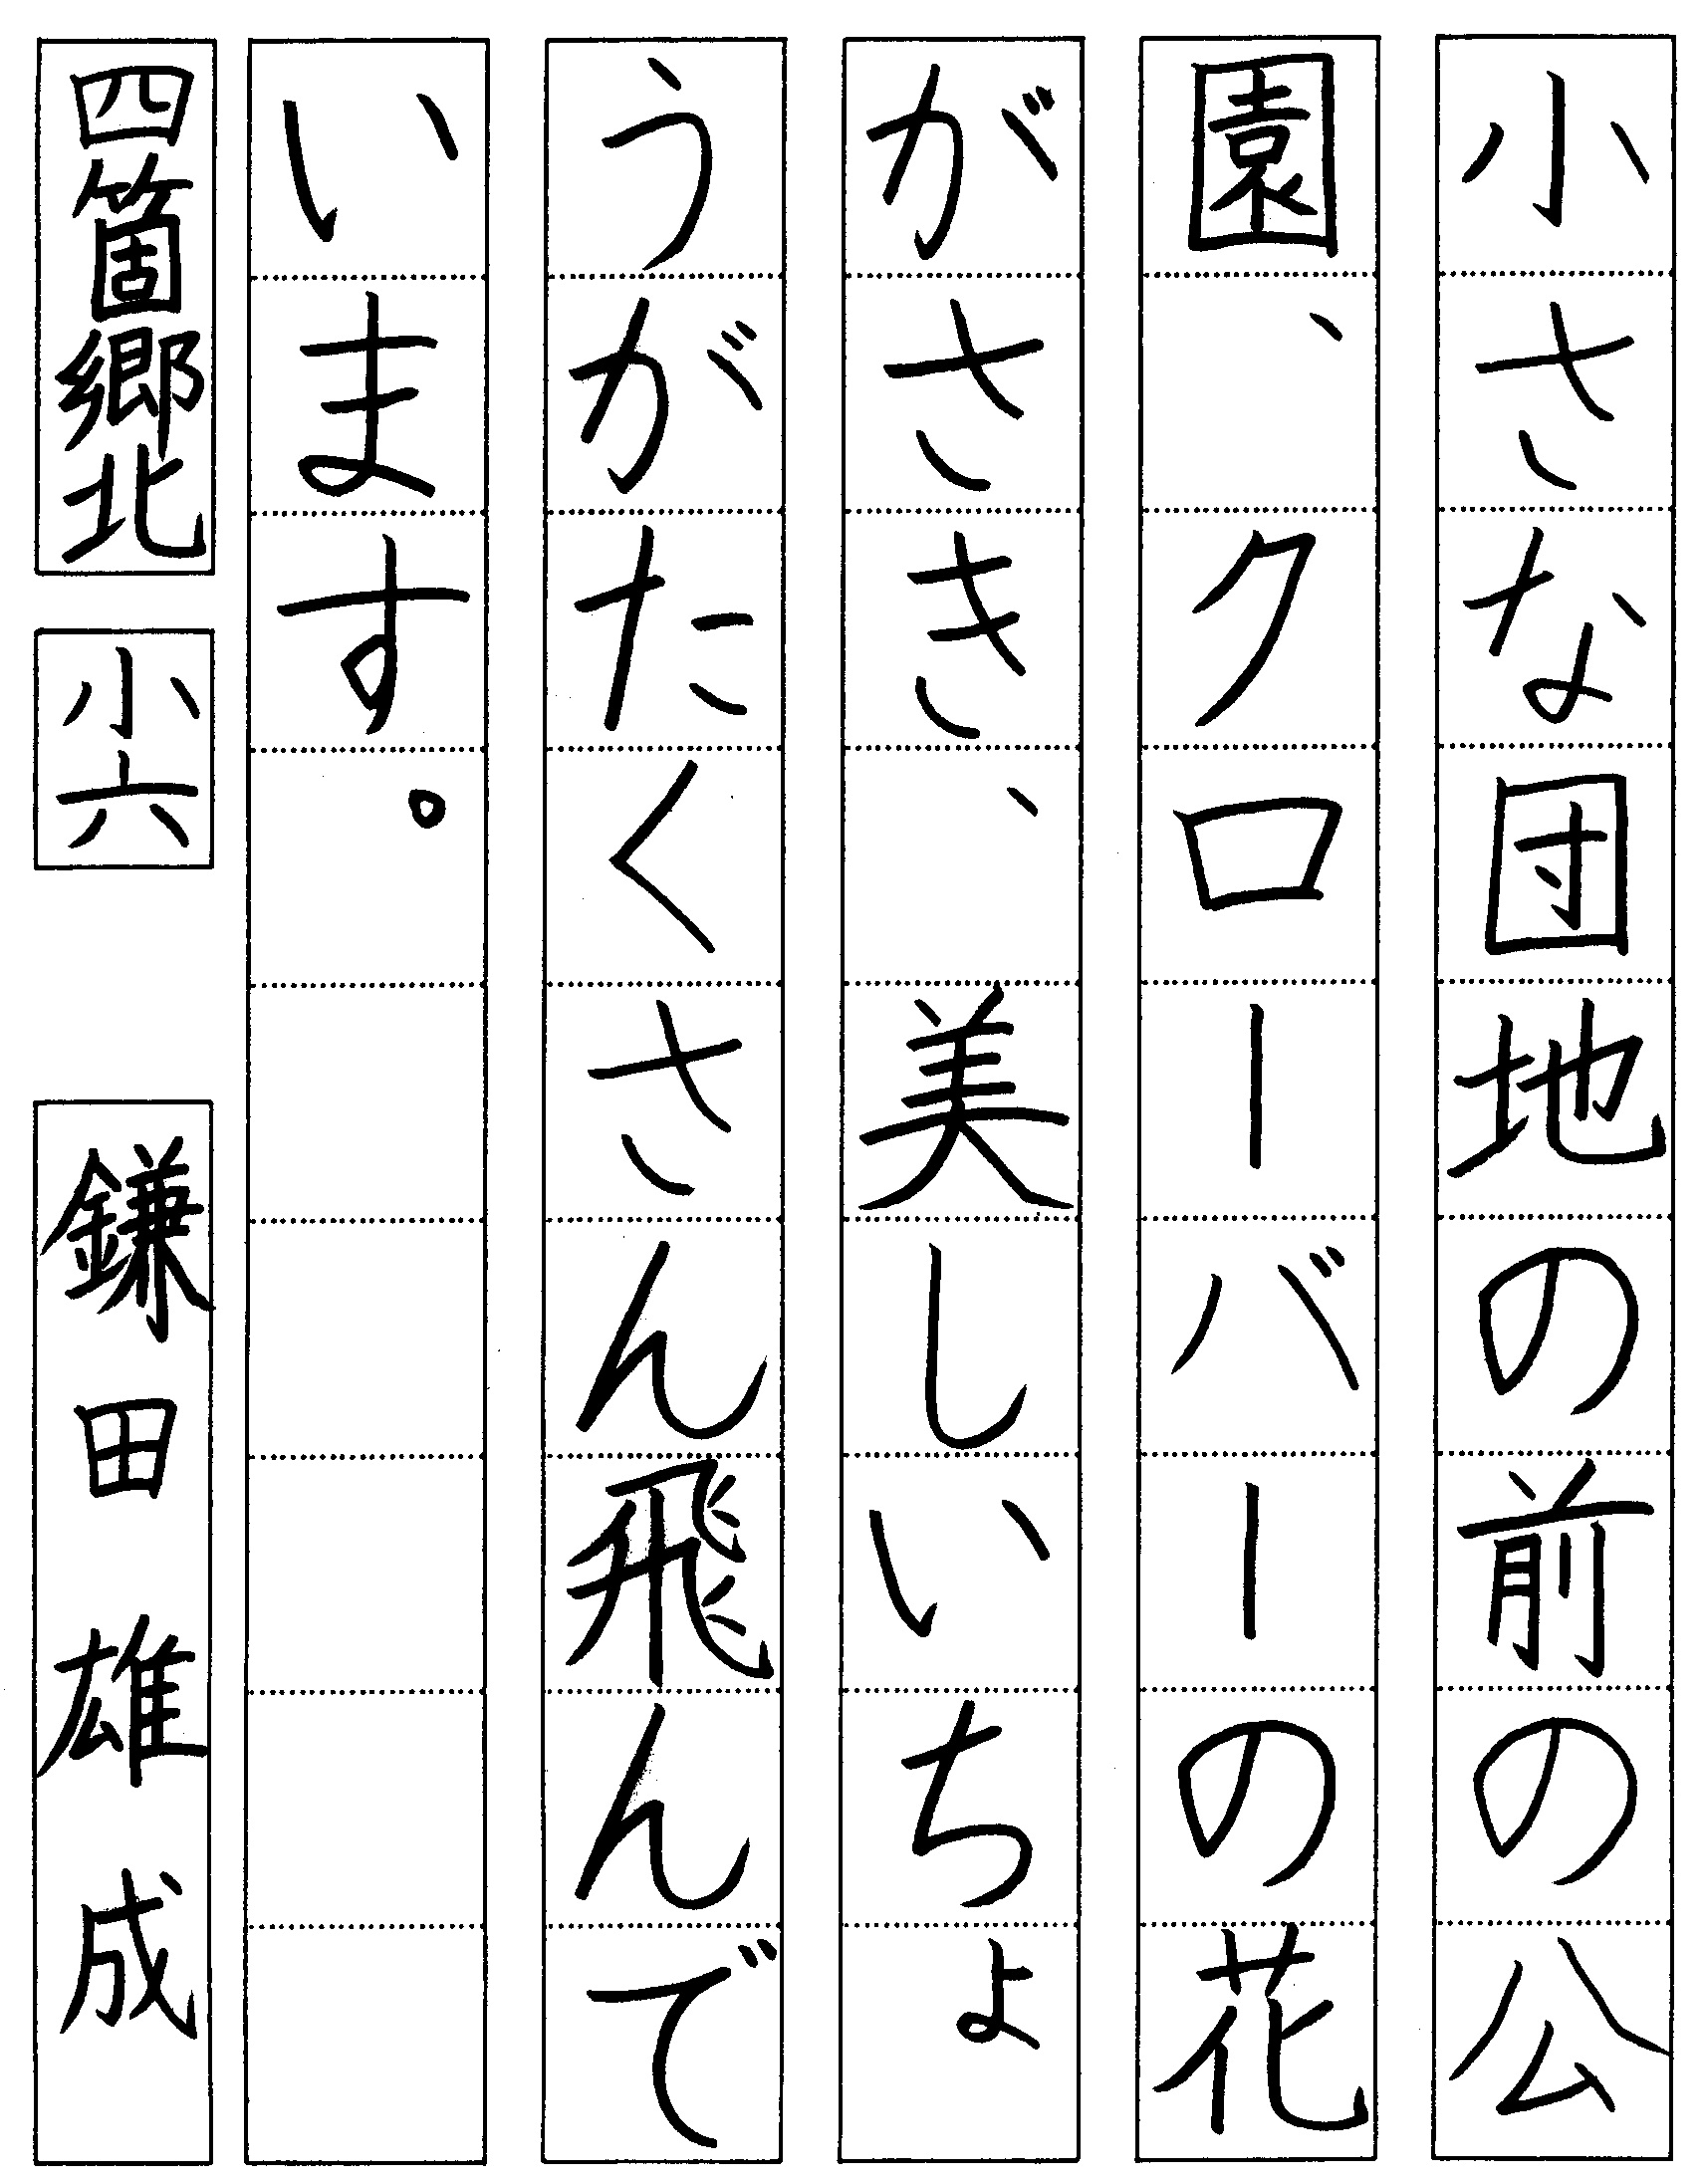 小さな団地の前の公
園、クローバーの花
がさき、美しいちょ
うがたくさん飛んで
います。
四箇郷北
小六
鎌田雄成